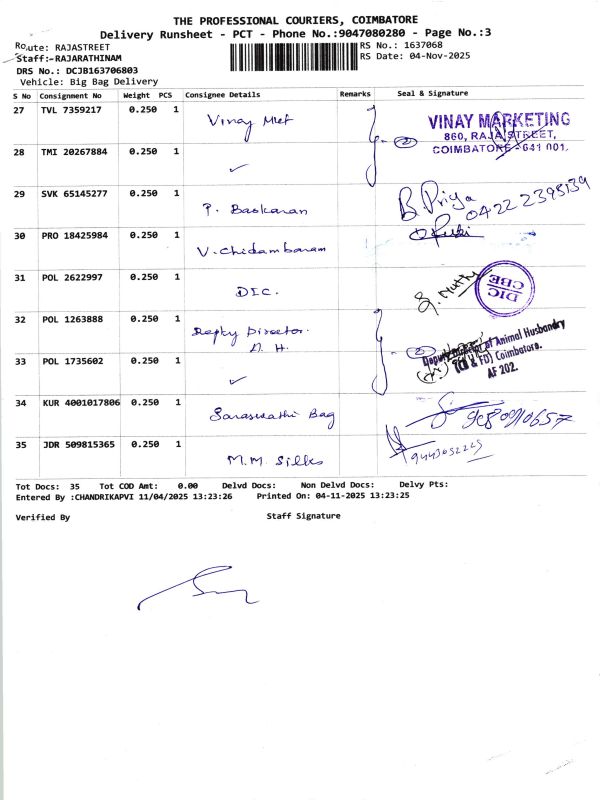 THE PROFESSIONAL COURIERS, COIMBATORE
Delivery Runsheet - PCT - Phone No.:9047080280 - Page No.:3
Route: RAJASTREET
RS No.: 1637068
Staff:-RAJARATHINAM
RS Date: 04-Nov-2025
DRS No.: DCJB163706803
Vehicle: Big Bag Delivery
S No Consignment No Weight PCS Consignee Details Remarks Seal & Signature
27 TVL 7359217 0.250 1 Vinay Mket
VINAY MARKETING
860, RAJA STREET,
COIMBATORE - 641 001.
28 TMI 20267884 0.250 1 ✓
29 SVK 65145277 0.250 1 P. Baskaran B. Priya 0422 2395139
30 PRO 18425984 0.250 1 V. Chidambaram
31 POL 2622997 0.250 1 DIC.
DIC
CBE
32 POL 1263888 0.250 1 Depty Director
A. H.
Deputy Director of Animal Husbandry
Coimbatore.
AF 202.
33 POL 1735602 0.250 1 ✓
34 KUR 4001017806 0.250 1 Saraswathi Bag
35 JDR 509815365 0.250 1 M.M. Silks
Tot Docs: 35 Tot COD Amt: 0.00 Delvd Docs: Non Delvd Docs: Delvy Pts:
Entered By :CHANDRIKAPVI 11/04/2025 13:23:26 Printed On: 04-11-2025 13:23:25
Verified By Staff Signature